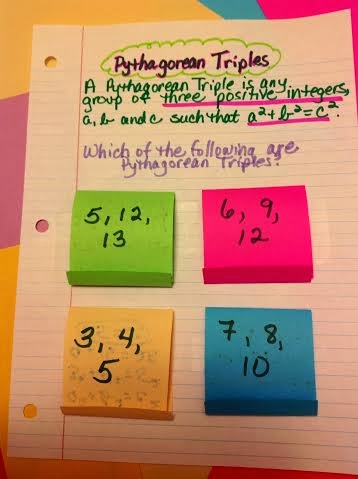 Pythagorean Triples
A Pythagorean Triple is any
group of three positive integers,
a, b and c such that a²+b²=c².
Which of the following are
Pythagorean Triples?
5, 12,
13
6, 9,
12
3, 4,
5
7, 8,
10